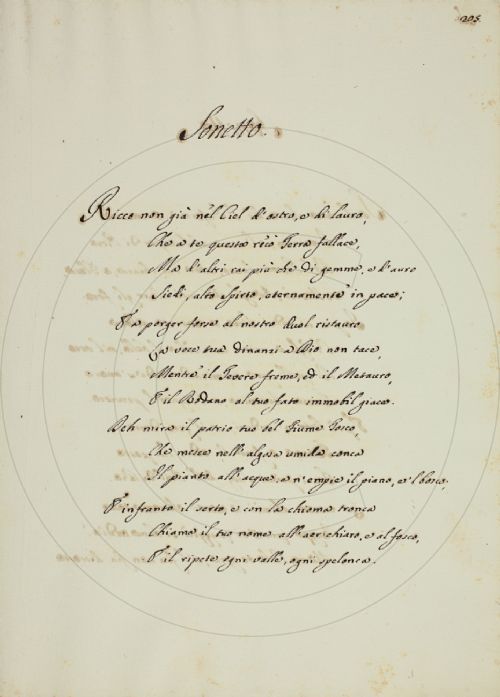 205.
Sonetto.
Ricco non già nel Ciel d'ostro, e di lauro,
Che a te questa reo Terra fallace,
Ma d'altri rai più che di gemme, e d'auro
Siedi, alto Spirto, eternamente in pace;
E a porger forse al nostro duol ristauro
La voce tua dinanzi a Dio non tace,
Mentre il Tevere freme, ed il Metauro,
E il Rodano al tuo fato immobil giace.
Deh mira il patrio tuo bel Fiume Tosco,
Che mesce nell'algosa umida conca
Il pianto all'acque, a n'empie il piano, e'l bosco;
E infranto il serto, e con la chioma tronca
Chiama il tuo nome all'aer chiaro, e al fosco,
E il ripete ogni valle, ogni spelonca.